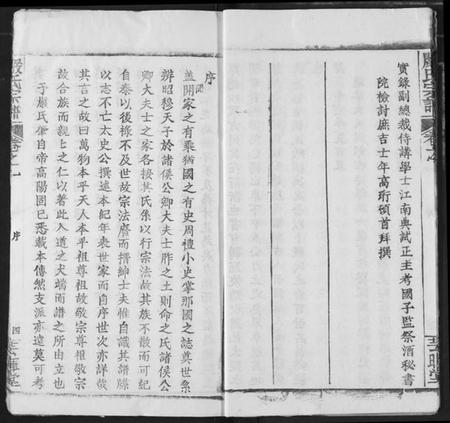 實錄副總裁侍講學士江南典試正主考國子監祭酒秘書
院檢討庶吉士年高珩頓首拜撰
序
蓋聞家之有乘猶國之有史周禮小史掌邦國之誌奠世系
辨昭穆天子於諸侯公卿大夫士胙之土則命之氏諸侯公
卿大夫士之家各按其氏系以行宗法故其族不散而可紀
自秦以後祿不及世故宗法廢而搢紳士夫惟自識其譜牒
以志不亡太史公撰述本紀年表世家而自序世次亦詳哉
其言之故曰萬物本乎天人本乎祖尊祖故敬宗尊祖敬宗
故合族而親親之仁以著此人道之大端而譜之所由立也
予嚴氏肇自帝高陽固已悉載本傳然支派亦遠莫可考
嚴氏宗譜
卷之一
序
四